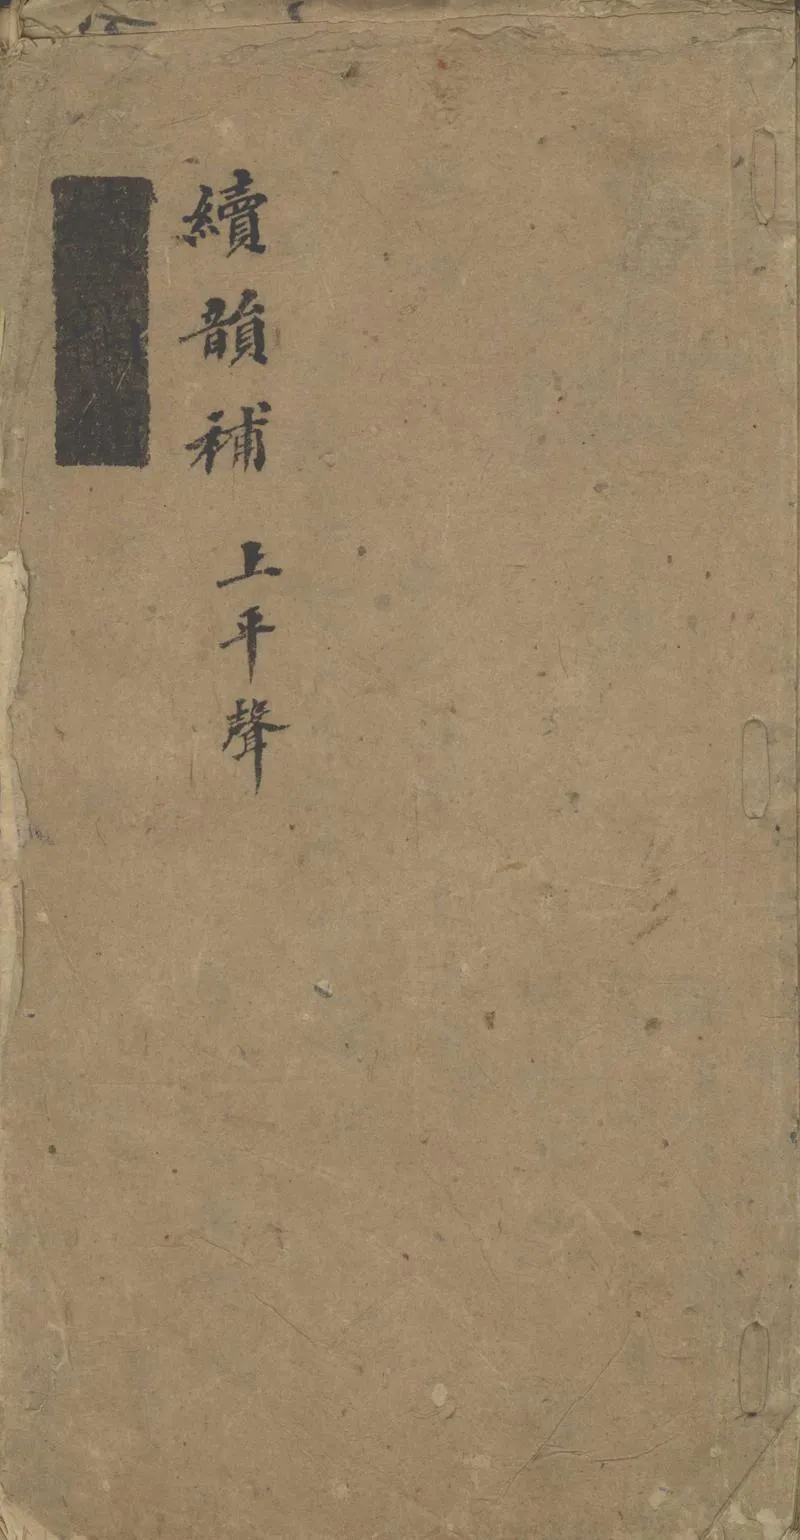 續韻補 上平聲